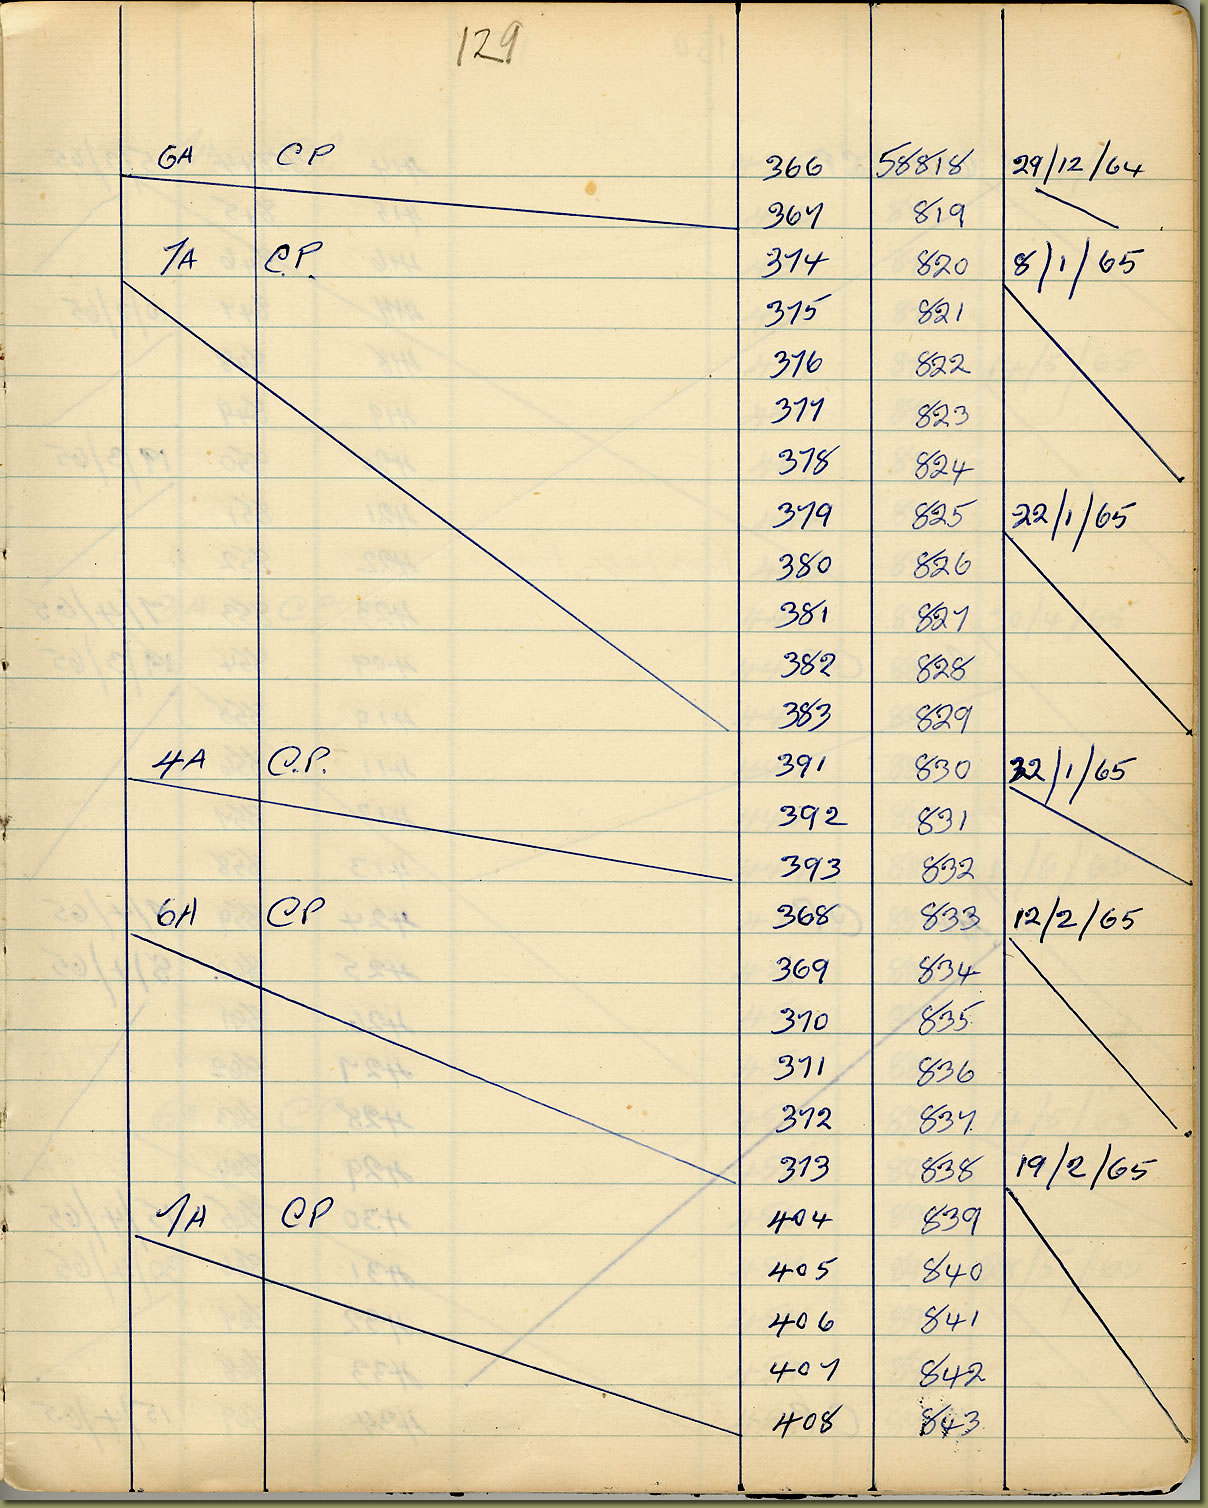 129
6A CP 366 58818 29/12/64
367 819
7A C.P. 374 820 8/1/65
375 821
376 822
377 823
378 824
379 825 22/1/65
380 826
381 827
382 828
383 829
4A C.P. 391 830 22/1/65
392 831
393 832
6A CP 368 833 12/2/65
369 834
370 835
371 836
372 837
373 838 19/2/65
7A CP 404 839
405 840
406 841
407 842
408 843